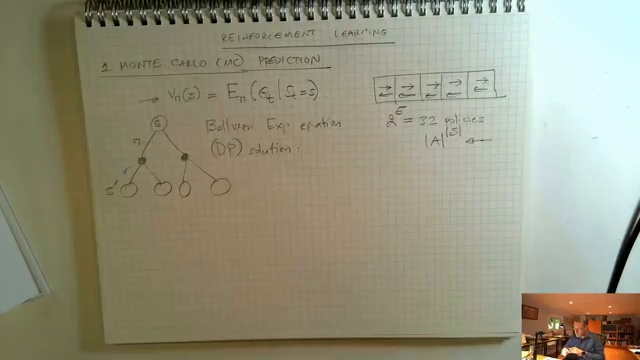 REINFORCEMENT LEARNING
1. MONTE-CARLO (MC) PREDICTION
→ Vπ(s) = Eπ(Gt | St = s)
S
Bellman Exp equation
(DP) solution:
π
r
s'
2^5 = 32 policies
|A|^|S| ←